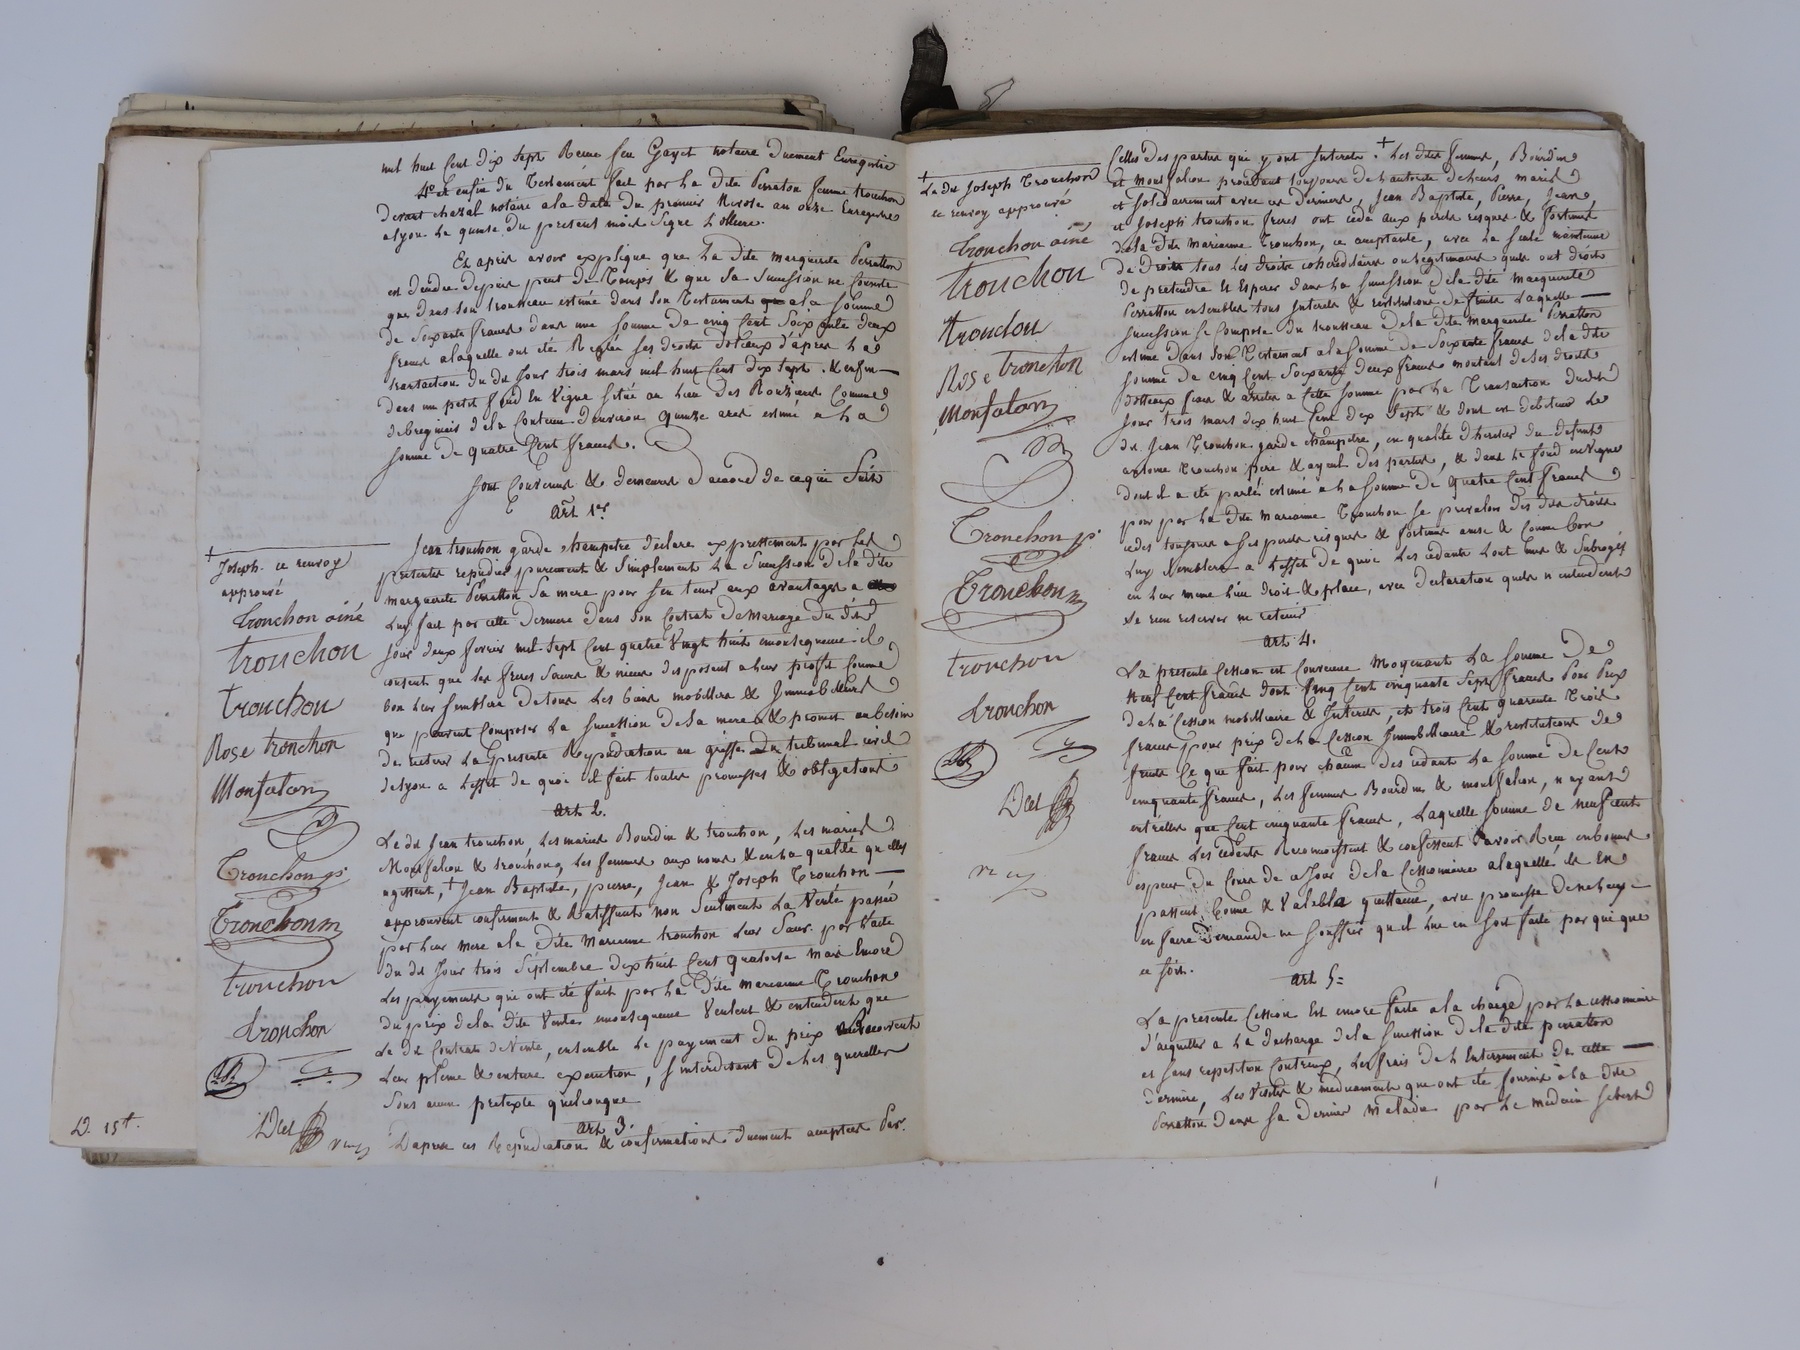 mil huit Cent dix sept Reçue feu Gayet notaire duement Enregistré
4° et enfin du Testament fait par La dite Perraton femme tronchon
devant chazal notaire a la date du premier Nivose an onze Enregistré
a lyon Le quinze du present mois Signé
Et après avoir expliqué que La dite marguerite Perratton
est décédée depuis peu de Temps & que Sa Succession ne Consiste
que dans son trousseau estimé dans Son Testament a la Somme
de Soixante francs dans une Somme de cinq Cent Soixante deux
francs a laquelle ont été Reglés ses droits doteaux d'après La
transaction du dit Jour trois mars mil huit Cent dix sept. & enfin —
dans un petit fond En Vigne Situé au Lieu des Commune
de la Contenue d'environ quinze ares estimé a La
Somme de quatre Cent francs.
Sont Convenus & demeurés d'accord de ce qui Suit
art 1er
Jean tronchon garde champetre declare expressement par Les
presentes repudier purement & Simplement La Succession de la dite
marguerite Perratton Sa mere pour s'en tenir aux avantages a
Luy fait par cette derniere dans Son Contrat de Mariage du dit
Jour deux fevrier mil Sept Cent quatre Vingt huit consequence il
consent que Ses freres Soeurs & nieces disposent a leur proffit Comme
bon Leur Semblera de tous Les biens mobilliers & Immobilliers
que peuvent Composer La Succession de la mere & promet au besoin
de reiterer La presente Repudiation au greffe du tribunal civil
de lyon a L'effet de quoi il fait toutes promesses & obligations
art 2.
Le dit Jean tronchon, Les mariés Bourdin & tronchon, Les mariés
Monfalon & tronchon, Les femmes aux noms & en la qualité qu'elles
agissent, + Jean Baptiste, pierre, Jean & Joseph Tronchon —
approuvent confirment & Ratiffient non Seulement La Vente passée
par Leur mere a la dite Marianne tronchon Leur Soeur par L'acte
du dit Jour trois Septembre dix huit Cent quatorze mais Encore
Les payements qui ont été fait par la dite Marianne Tronchon
du prix de la dite Vente consequence Veulent & entendent que
Le dit Contrat de Vente, ensemble Le payement du prix
Leur pleine & entiere execution, s'interdisant de Les quereller
Sous aucun pretexte quelconque
art 3.
D'après ces Repudiation & confirmations duement acceptées Par
+
Joseph. ce renvoy
approuvé
tronchon ainé
tronchon
tronchon
Rose tronchon
Monfalon
Tronchon p.
Tronchon m
tronchon
tronchon
D. 15t.
Celles des parties qui y ont Interets. + Les dites femmes, Bourdin
et Monfalon procédant toujours de L'autorité de leurs maris
et Solidairement avec ces derniers, Jean Baptiste, Pierre, Jean,
et Joseph tronchon freres ont cédé aux perils risques & fortunes
de la dite Marianne Tronchon, ce acceptante, avec La Seule maintenue
de Droits tous Les droits cohereditaires ou Legitimaires qu'ils ont droit
de pretendre Et Esperer dans La Succession de la dite Marguerite
Perratton ensembles tous Interets & restitutions de fruits Laquelle —
Succession Se Compose du trousseau de la dite Marguerite Perratton
estimé dans Son Testament a la Somme de Soixante francs de la dite
Somme de cinq Cent Soixante deux francs montant de Ses droits
dotteaux fixés & arrêtés a Cette Somme par La Transaction du dit
Jour trois mars dix huit Cent dix Sept & dont est debiteur Le
dit Jean Tronchon garde champetre, en qualité d'heritier du defunt
antoine tronchon pere & ayeul des parties, & dans Le fond en Vigne
dont il a été parlé estimé a La Somme de quatre Cent francs
pour par La dite Marianne Tronchon Se prevaloir des dits droits
cédés toujours a Ses perils risques & fortunes ainsi & Comme bon
Luy Semblera a L'effet de quoi Les cédants L'ont mise & Subrogée
en Leur meme Lieu droit & place, avec declaration qu'ils n'entendent
Se rien reserver ni retenir
art 4.
La presente Cession est Convenue Moyenant La Somme De
Neuf Cent francs dont Cinq Cent cinquante Sept francs Pour Prix
de La Cession mobilliaire & Interets, et trois Cent quarante Trois
francs pour prix de La Cession Immobilliaire & restitutions de
fruits Ce que fait pour chacun des cédants La Somme de Cent
cinquante francs, Les femmes Bourdin & montfalon, n'ayant
entr'elles que Cent cinquante francs, Laquelle Somme de neuf cent
francs Les cédants Reconnoissent & confessent avoir Reçu en bonnes
especes du Cours de ce Jour de la Cessionnaire a laquelle ils En
passent Bonne & Valable quittance, avec promesse de ne luy
en faire Demande ni Souffrir qu'il Lui en Soit faite par qui que
ce soit.
art 5=
La presente Cession Est encore faite a la charge par La cessionnaire
d'acquitter a La decharge de la Succession de la dite perratton
et sans repetition Contr'eux, Les frais de L'Enterrement de cette —
derniere, Les Visites & medicaments qui ont été fournis a la dite
Perratton dans Sa derniere Maladie par Le Medecin
+
Le dit Joseph Tronchon
ce renvoy approuvé
tronchon ainé
tronchon
tronchon
Rose tronchon
Monfalon
Tronchon p.
Tronchon m
tronchon
tronchon